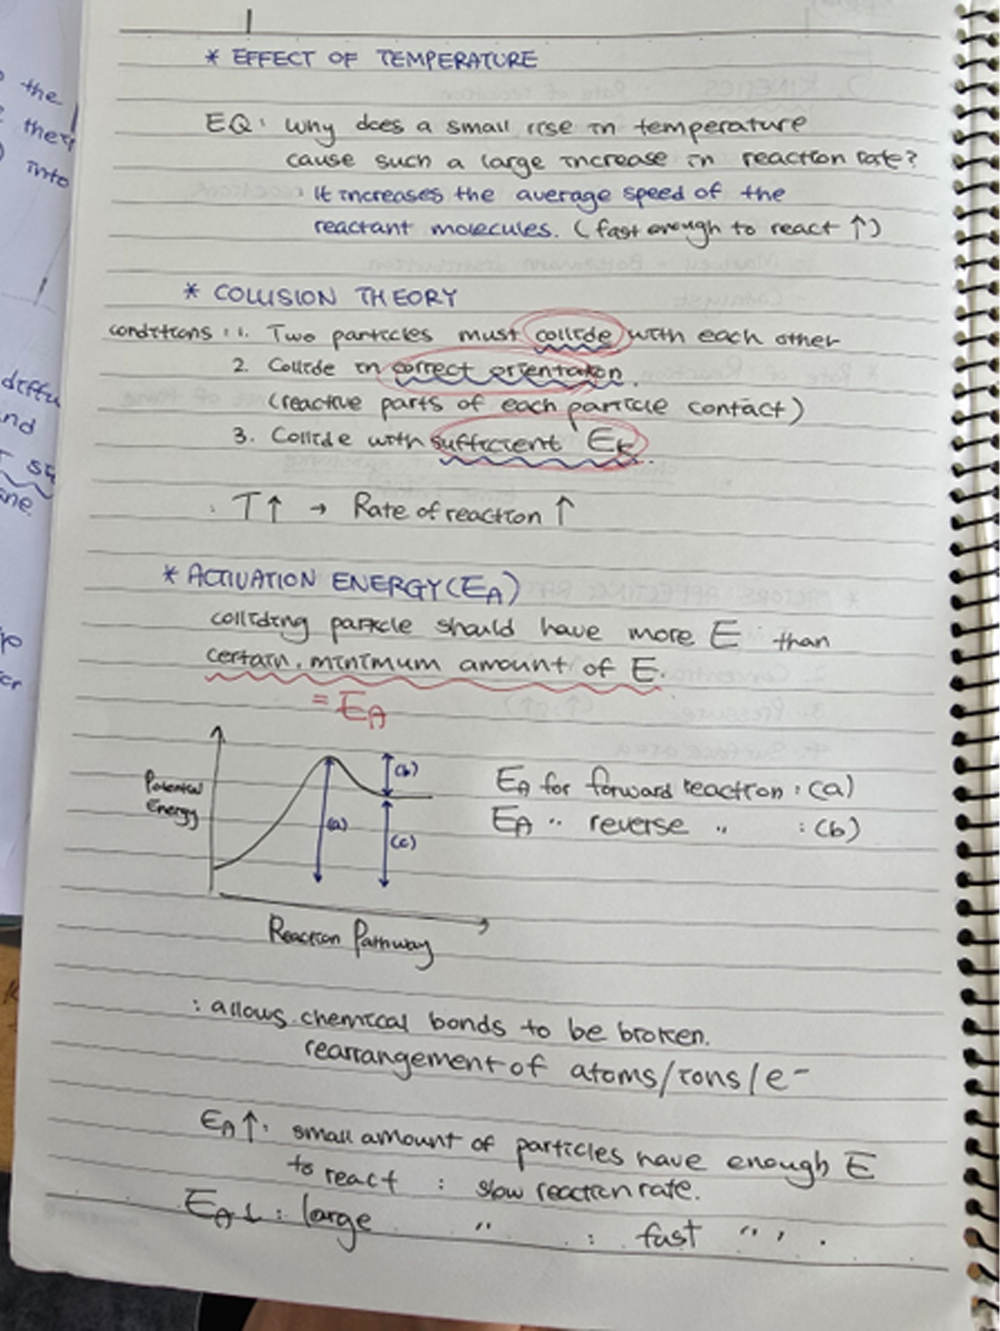 * EFFECT OF TEMPERATURE
EQ: Why does a small rise in temperature
cause such a large increase in reaction rate?
: It increases the average speed of the
reactant molecules. (fast enough to react ↑)
* COLLISION THEORY
conditions : 1. Two particles must collide with each other
2. Collide in correct orientation.
(reactive parts of each particle contact)
3. Collide with sufficient Ek.
: T↑ → Rate of reaction ↑
* ACTIVATION ENERGY (EA)
colliding particle should have more E than
certain, minimum amount of E.
= EA
Potential
Energy
(a)
(b)
(c)
Reaction Pathway
EA for forward reaction : (a)
EA " reverse " : (b)
: allows chemical bonds to be broken.
rearrangement of atoms/ions/e-
EA↑: small amount of particles have enough E
to react : slow reaction rate.
EA↓ : large " : fast " " .
the
into
and